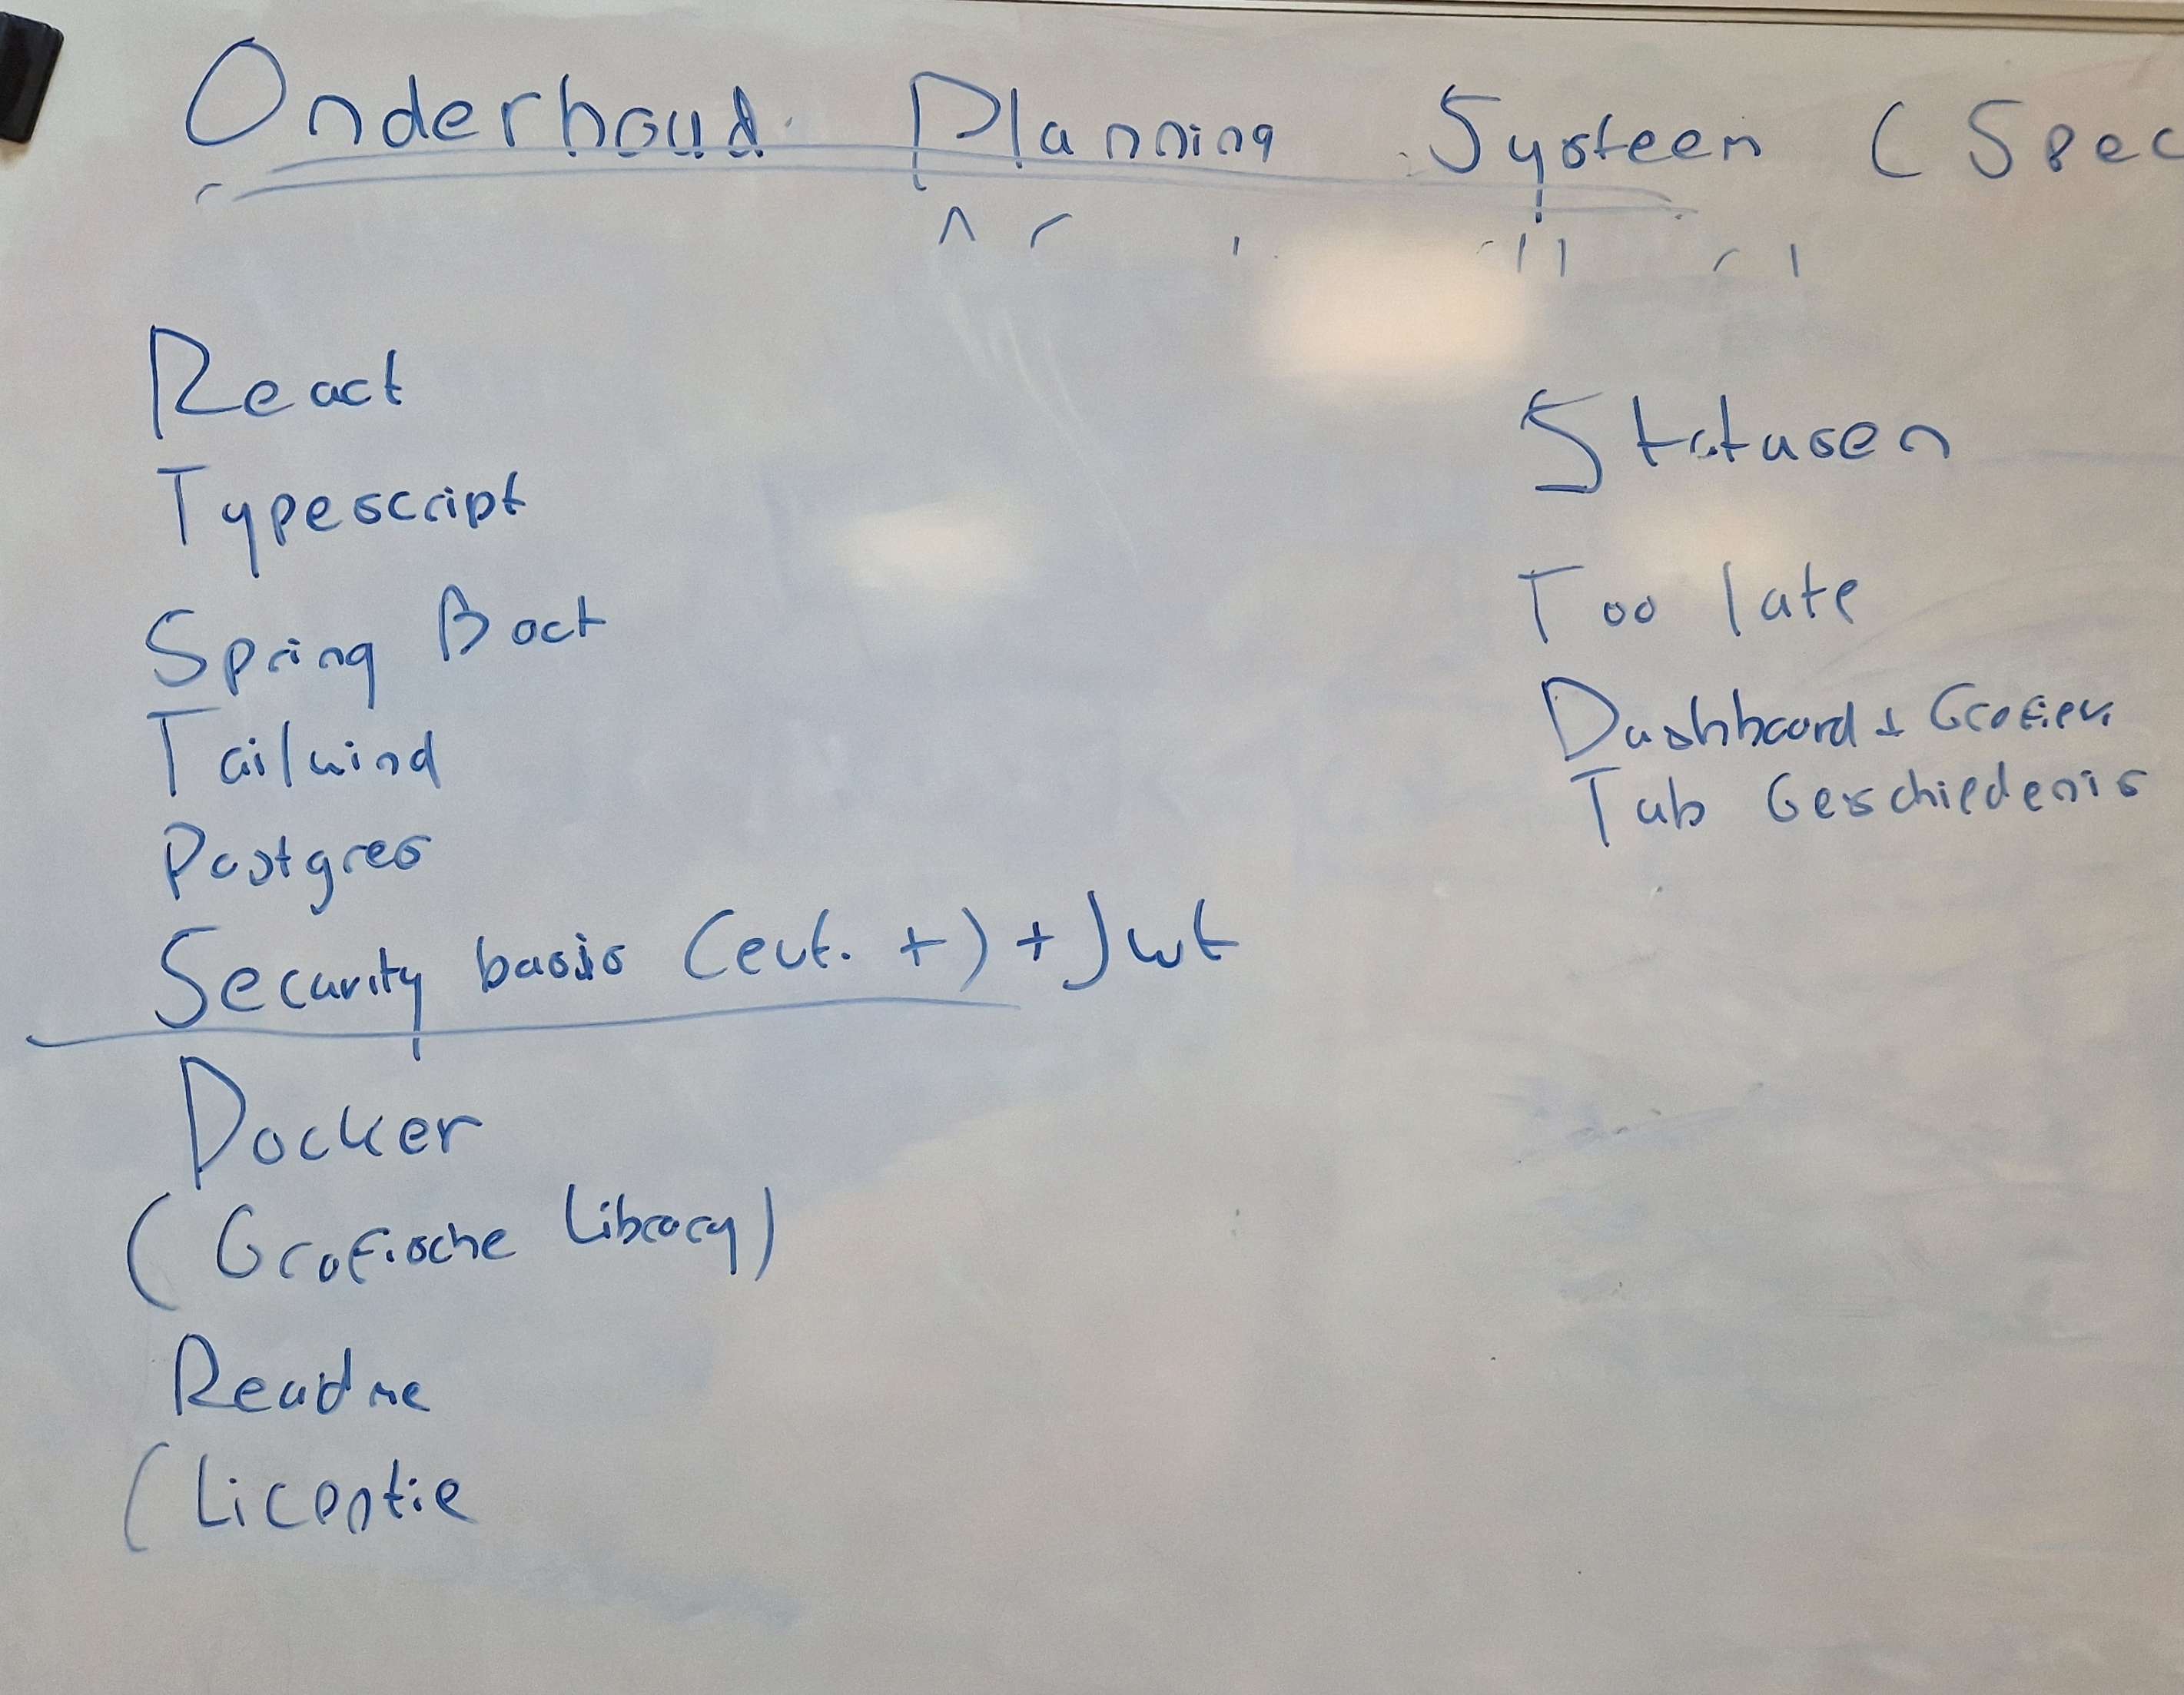 Onderhoud Planning Systeem (Spec
React
Typescript
Spring Boot
Tailwind
Postgres
Security basis (evt. +) + Jwt
Docker
(Grafische Library)
Readme
(Licentie
Statusen
Too late
Dashboard + Grafiek
Tab Geschiedenis